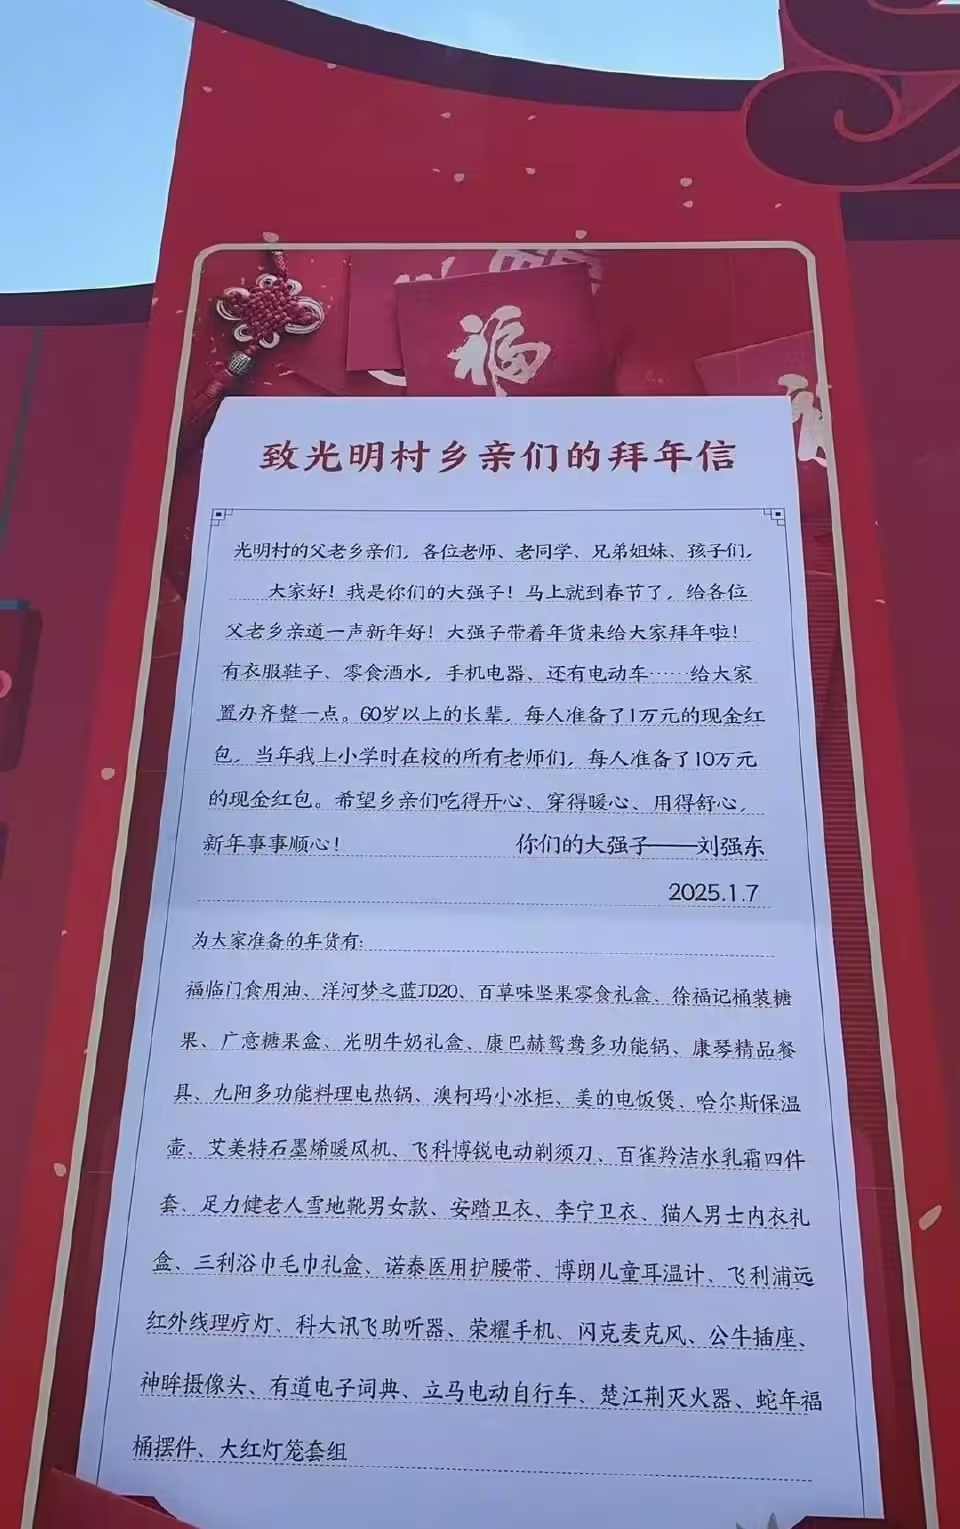 福
致光明村乡亲们的拜年信
光明村的父老乡亲们，各位老师、老同学、兄弟姐妹、孩子们，
大家好！我是你们的大强子！马上就到春节了，给各位
父老乡亲道一声新年好！大强子带着年货来给大家拜年啦！
有衣服鞋子、零食酒水，手机电器、还有电动车……给大家
置办齐整一点。60岁以上的长辈，每人准备了1万元的现金红
包，当年我上小学时在校的所有老师们，每人准备了10万元
的现金红包。希望乡亲们吃得开心、穿得暖心、用得舒心，
新年事事顺心！
你们的大强子——刘强东
2025.1.7
为大家准备的年货有：
福临门食用油、洋河梦之蓝JD20、百草味坚果零食礼盒、徐福记桶装糖
果、广意糖果盒、光明牛奶礼盒、康巴赫鸳鸯多功能锅、康琴精品餐
具、九阳多功能料理电热锅、澳柯玛小冰柜、美的电饭煲、哈尔斯保温
壶、艾美特石墨烯暖风机、飞科博锐电动剃须刀、百雀羚洁水乳霜四件
套、足力健老人雪地靴男女款、安踏卫衣、李宁卫衣、猫人男士内衣礼
盒、三利浴巾毛巾礼盒、诺泰医用护腰带、博朗儿童耳温计、飞利浦远
红外线理疗灯、科大讯飞助听器、荣耀手机、闪克麦克风、公牛插座、
神眸摄像头、有道电子词典、立马电动自行车、楚江荆灭火器、蛇年福
桶摆件、大红灯笼套组